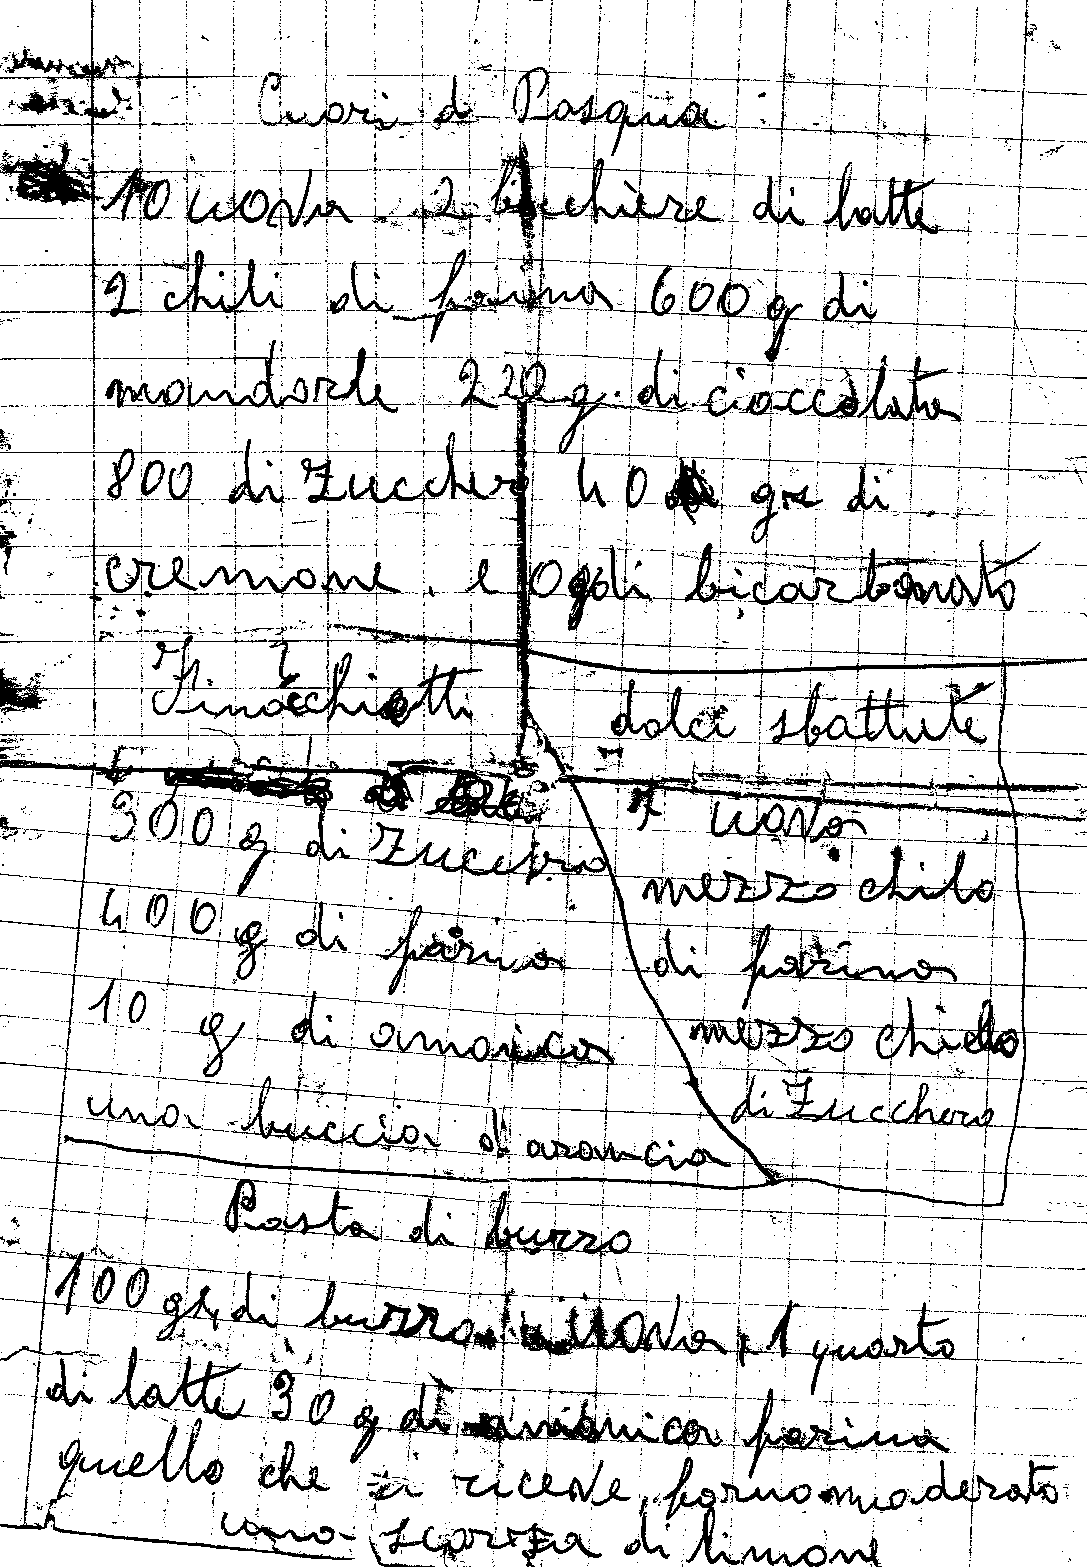 Cuori d Pasqua
10 uova 2 bicchiere di latte
2 chili di farina 600 g di
mandorle 220 g. di cioccolata
800 di zucchero 40 gr di
cremone. e di bicarbonato
Finocchietti
300 g di zucchero
400 g di farina
10 g di amonica
una buccia d'arancia
dolci sbattute
7 uova
mezzo chilo
di farina
mezzo chilo
di zucchero
Pasta di burro
100 gr. di burro uova, 1 quarto
di latte 30 g di amonica farina
quello che si riceve, forno moderato
una scorza di limone